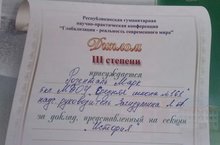 Республиканская гуманитарная
научно-практическая конференция
"Глобализация - реальность современного мира"
Диплом
III степени
присуждается
Марк
МАОУ "Средняя школа №
руководитель
за доклад, представленный на секции
"История"